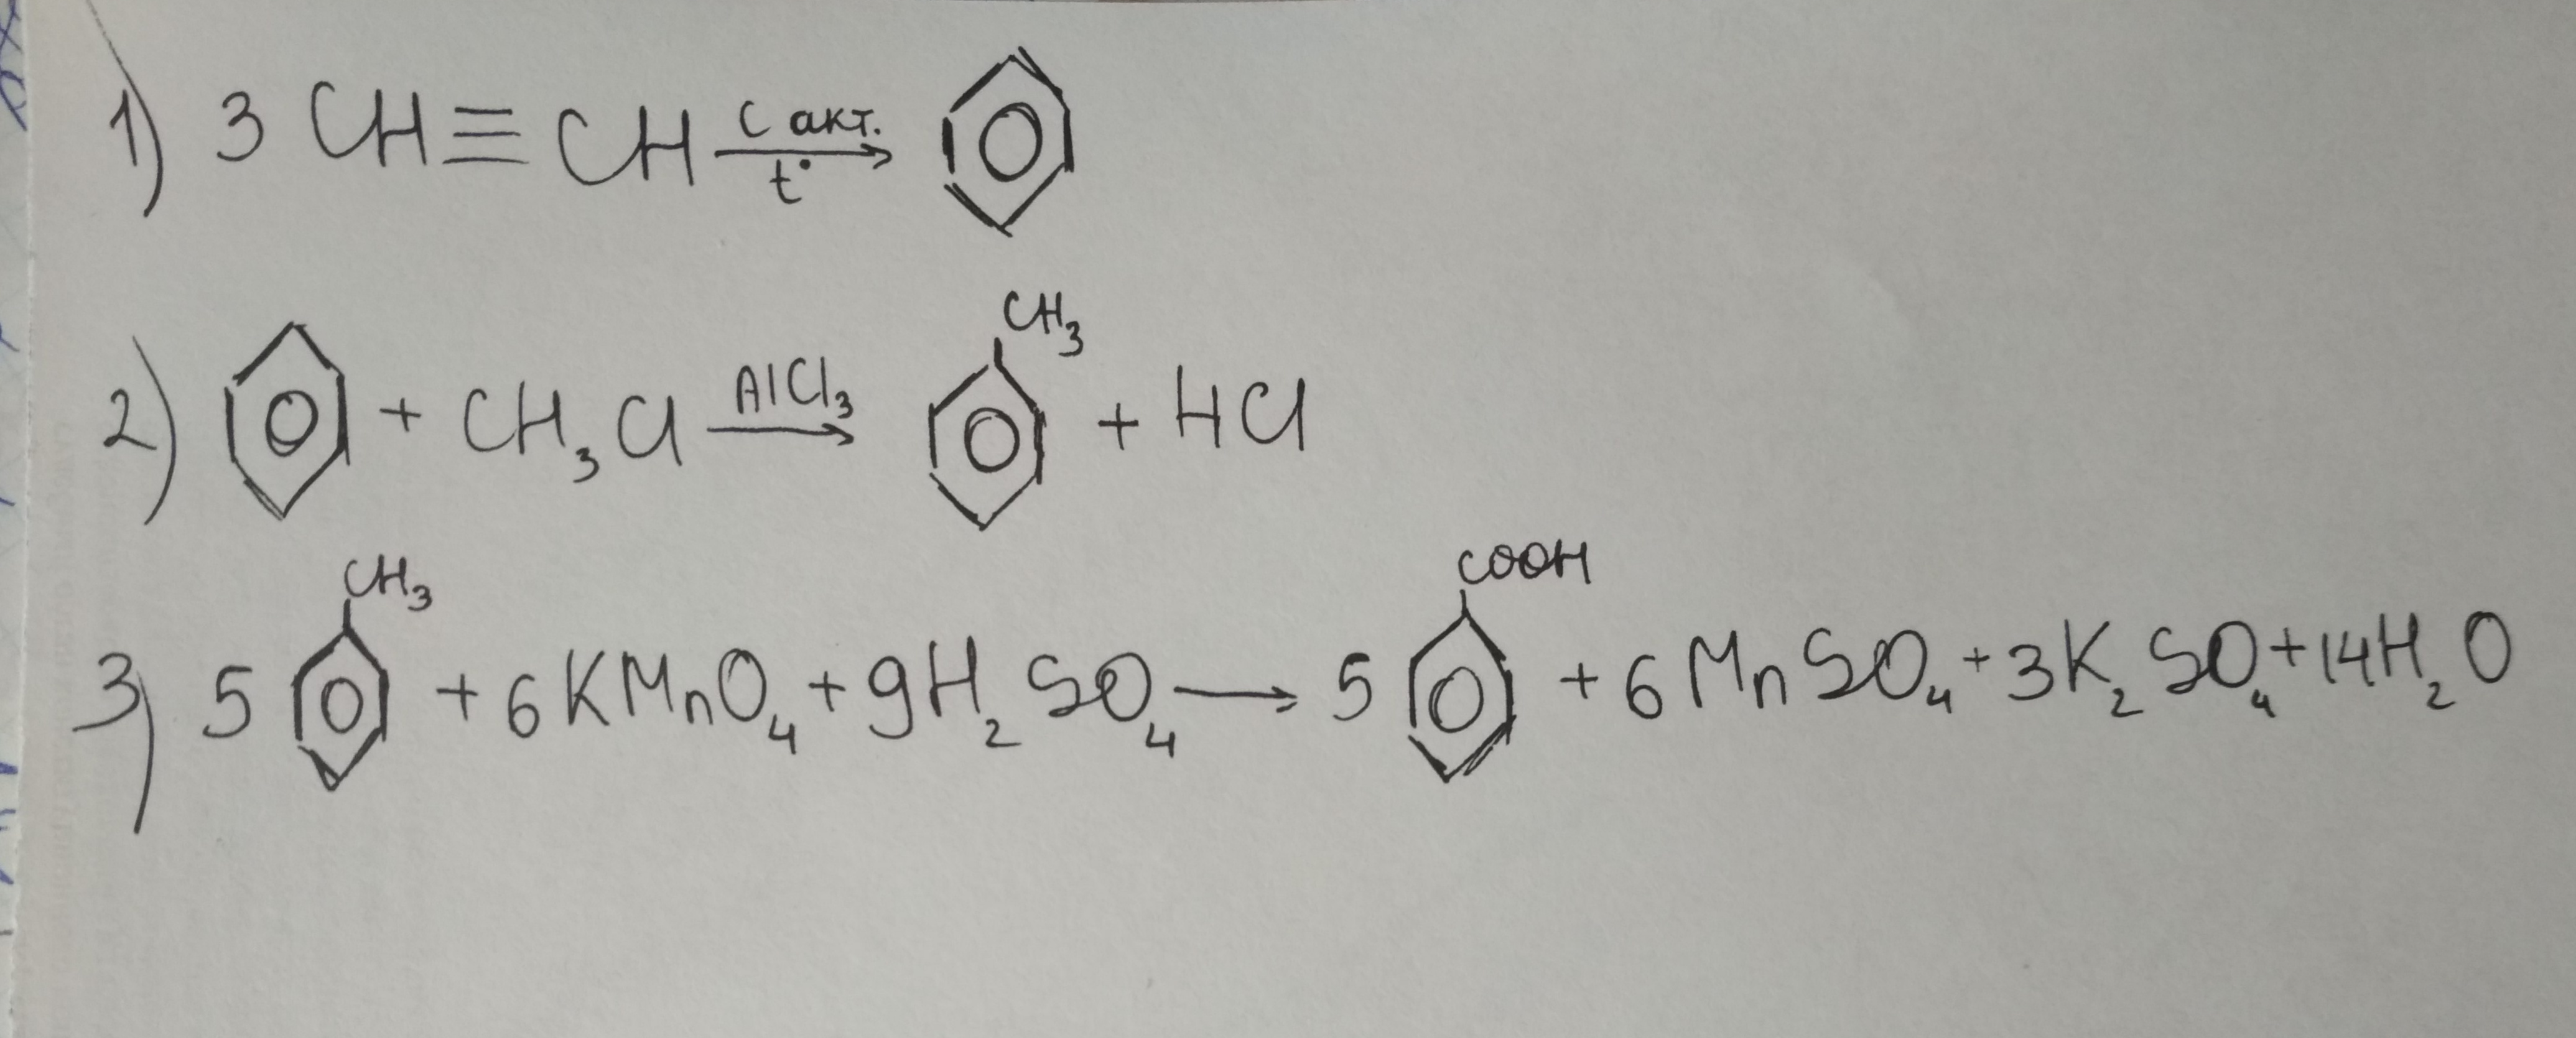 1) 3 CH≡CH C акт. t° →
2) + CH₃Cl AlCl₃ → CH₃ + HCl
3) 5 CH₃ + 6KMnO₄ + 9H₂SO₄ → 5 COOH + 6MnSO₄ + 3K₂SO₄ + 14H₂O